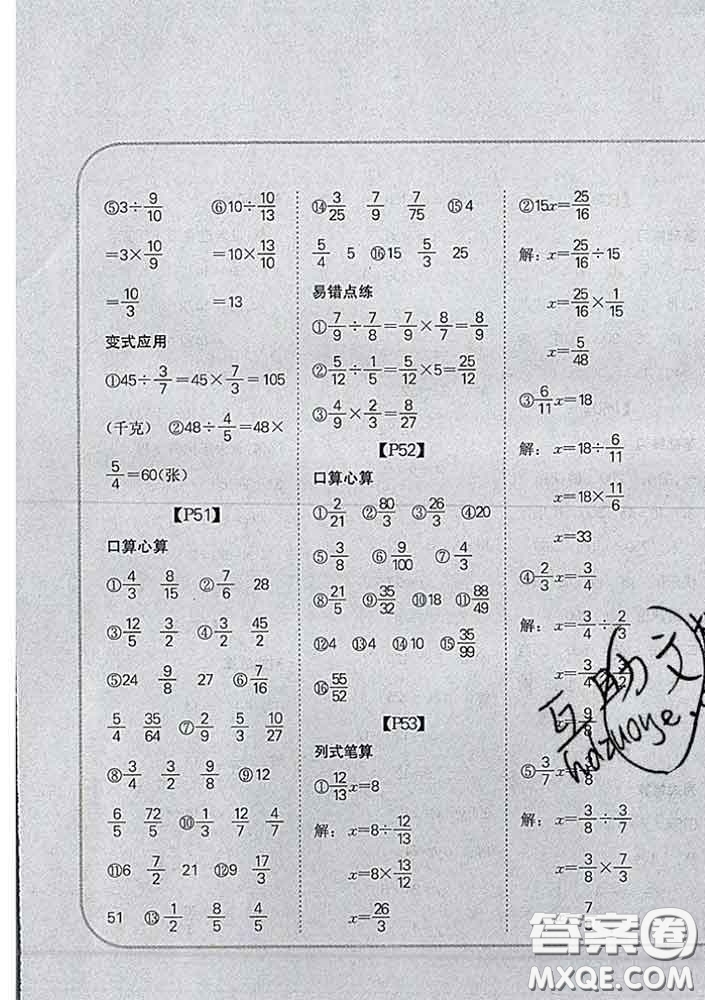 ⑤3÷9/10 ⑥10÷10/13
=3×10/9 =10×13/10
=10/3 =13
变式应用
①45÷3/7=45×7/3=105
(千克) ②48÷4/5=48×
5/4=60(张)
【P51】
口算心算
①4/3 8/15 ②7/6 28
③12/5 3/2 ④3/2 45/2
⑤24 9/8 27 ⑥7/16
5/4 35/64 ⑦2/9 5/3 10/27
⑧3/4 3/2 9/8 ⑨12
6/5 72/5 ⑩1/3 12/7 4/7
⑪6 7/2 21 ⑫9 17/3
51 ⑬1/2 8/5 4/5
⑭3/25 7/9 7/75 ⑮4
5/4 5 ⑯15 5/3 25
易错点练
①7/9÷7/8=7/9×8/7=8/9
②5/12÷1/5=5/12×5=25/12
③4/9×2/3=8/27
【P52】
口算心算
①2/21 ②80/3 ③26/3 ④20
⑤3/8 ⑥9/100 ⑦4/3
⑧21/5 ⑨35/32 ⑩18 ⑪88/49
⑫4 ⑬4 ⑭10 ⑮35/99
⑯55/52
【P53】
列式笔算
①12/13x=8
解: x=8÷12/13
x=8×13/12
x=26/3
②15x=25/16
解: x=25/16÷15
x=25/16×1/15
x=5/48
③6/11x=18
解: x=18÷6/11
x=18×11/6
x=33
④2/3x=3/4
解: x=3/4÷2/3
x=3/4
x=9/8
⑤3/7x=3/8
解: x=3/8÷3/7
x=3/8×7/3
7
互助文
hdzuoye.
答案圈
MXQE.COM